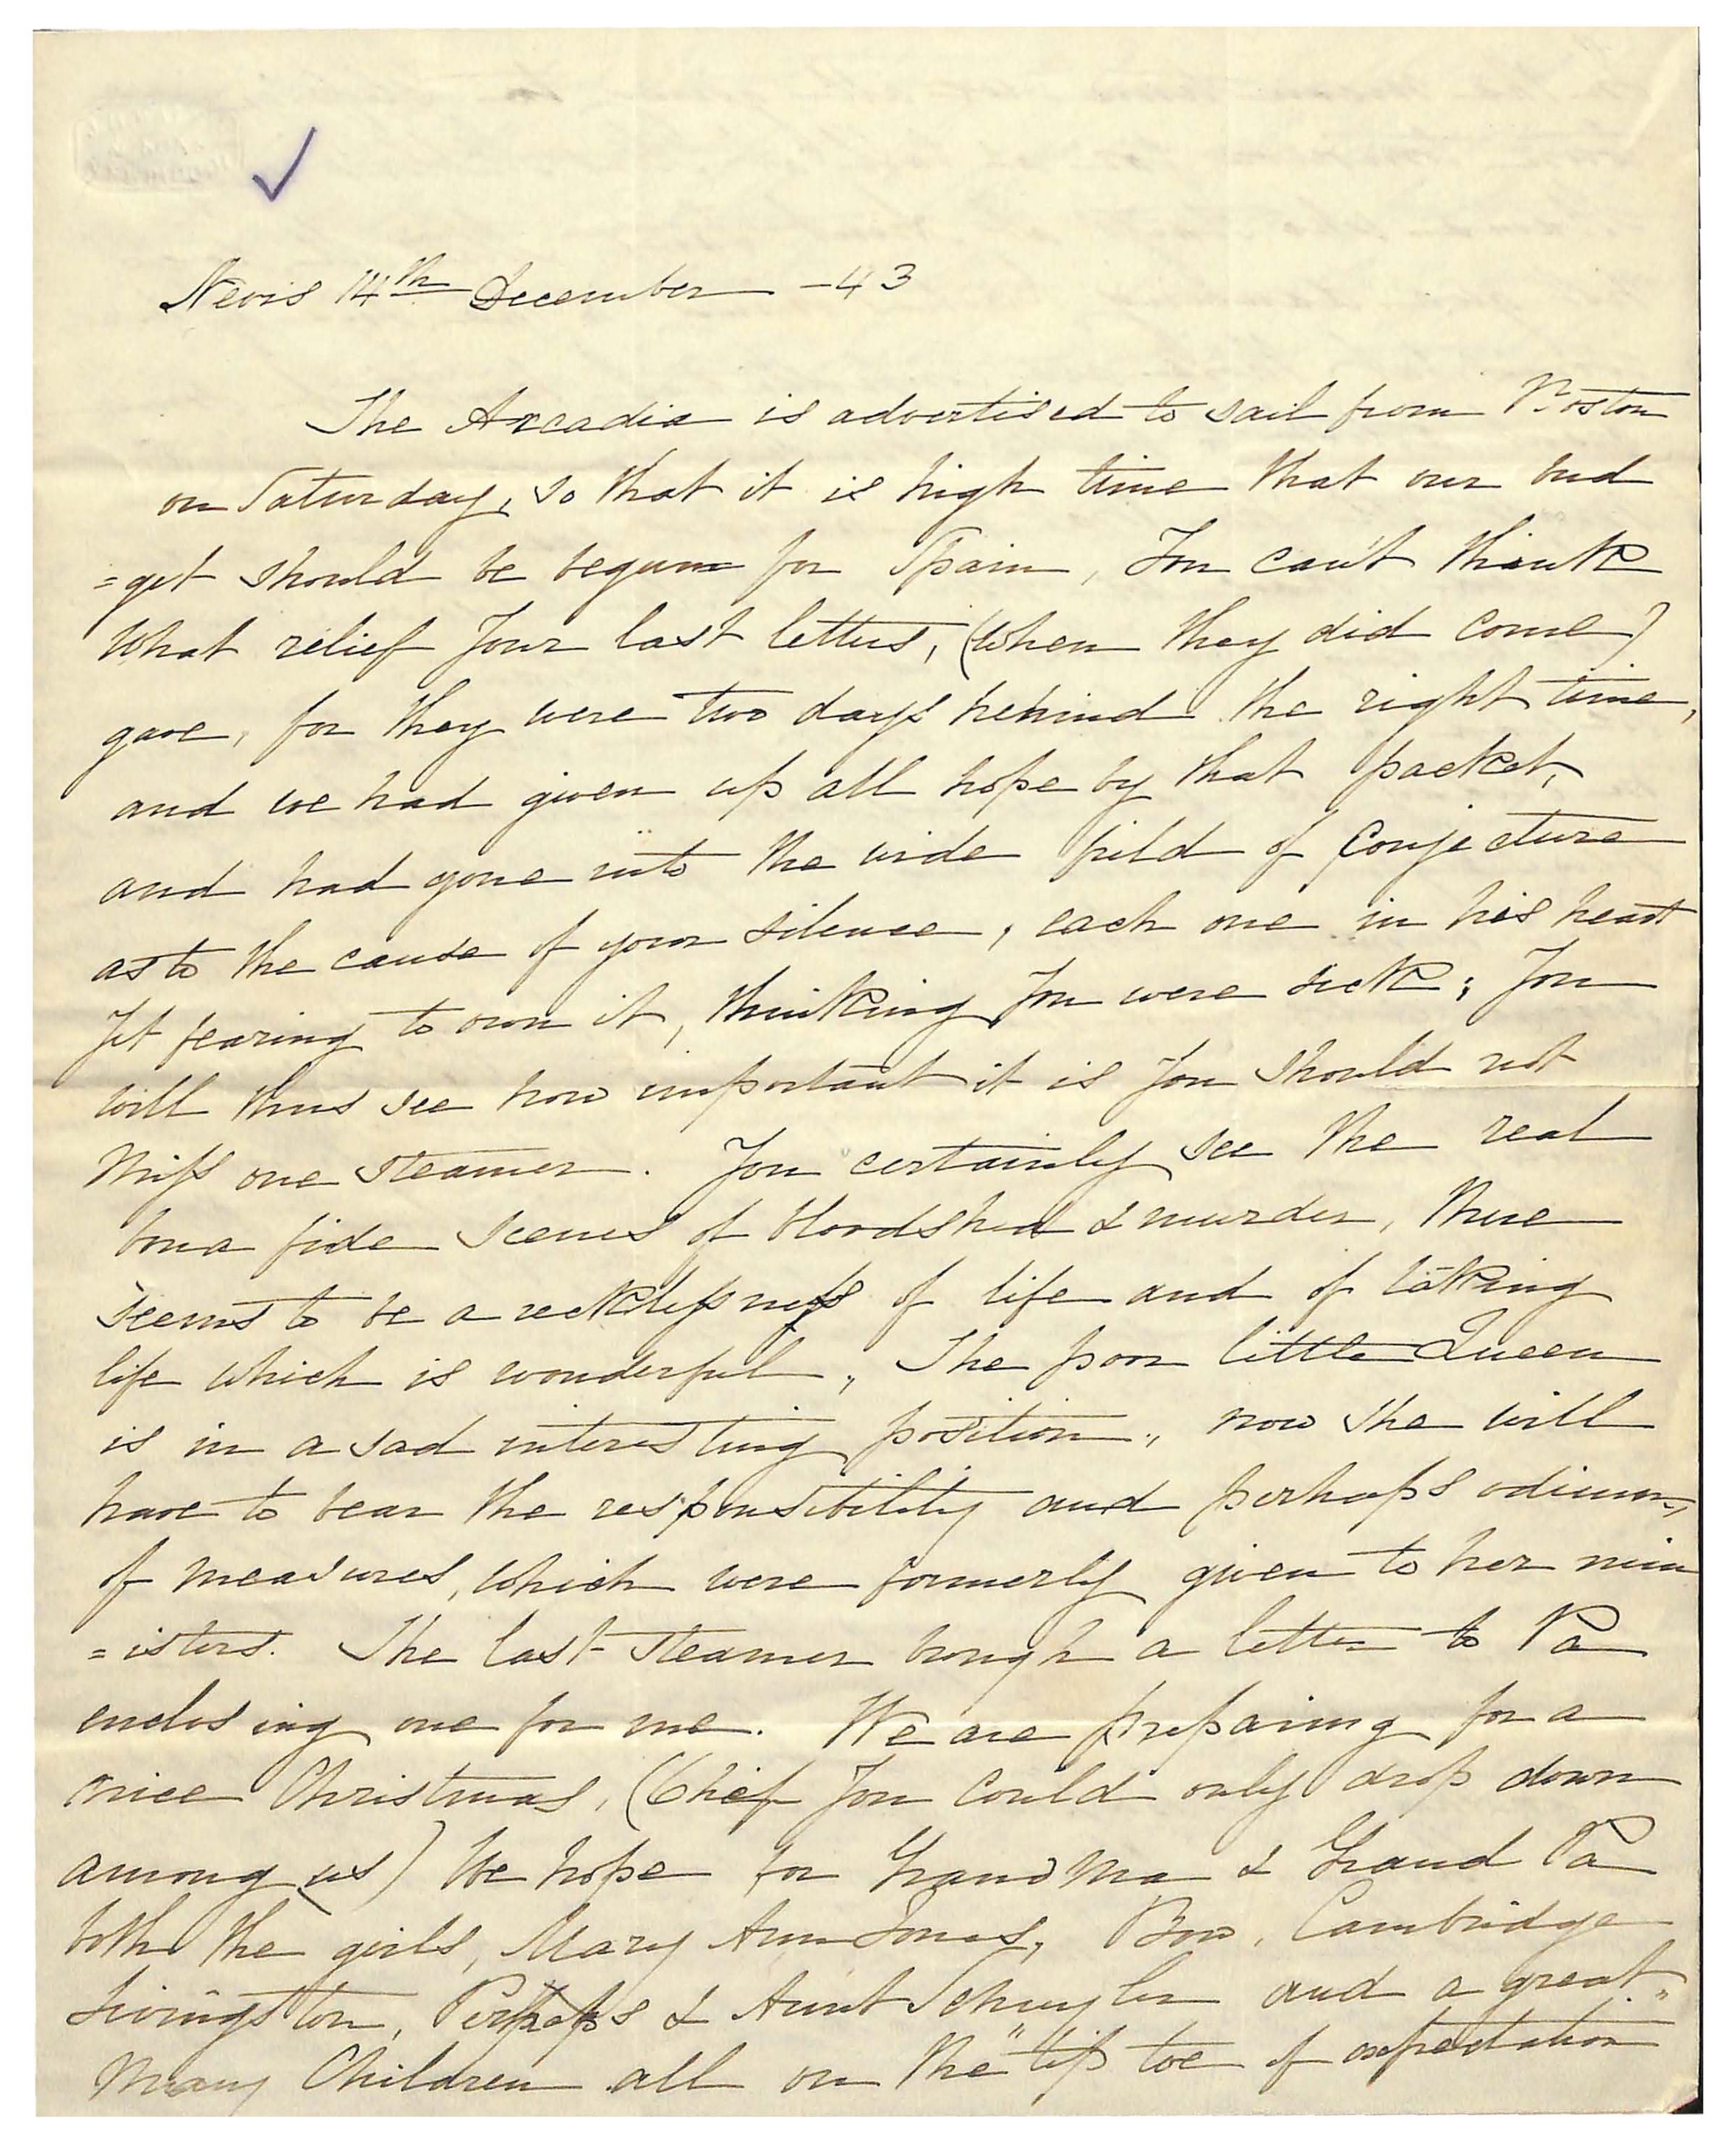 Nevis 14th December -43
The Arcadia is advertised to sail from Boston
on Saturday, so that it is high time that our bud
=get should be begun for Spain, You can't think
what relief your last letters, (when they did come)
gave, for they were two days behind the right time,
and we had given up all hope by that packet,
and had gone into the wide field of Conjecture
as to the cause of your silence, each one in his heart
yet fearing to own it, thinking you were sick; you
will thus see how important it is you should not
miss one steamer. You certainly see the real
bona fide scenes of bloodshed & murder, there
seems to be a recklessness of life and of taking
life which is wonderful, The poor little Queen
is in a sad interesting position, now she will
have to bear the responsibility and perhaps odium,
of measures, which were formerly given to her min
=isters. The last steamer brough a letter to Pa
enclosing one for me. We are preparing for a
nice Christmas, (Oh if you could only drop down
among us) We hope for Grand Ma & Grand Pa
both the girls, Mary Ann Jones, Bow, Cambridge
Livingston, Perhaps & Aunt Schuyler and a great
Many Children all on the "tip toe of expectation